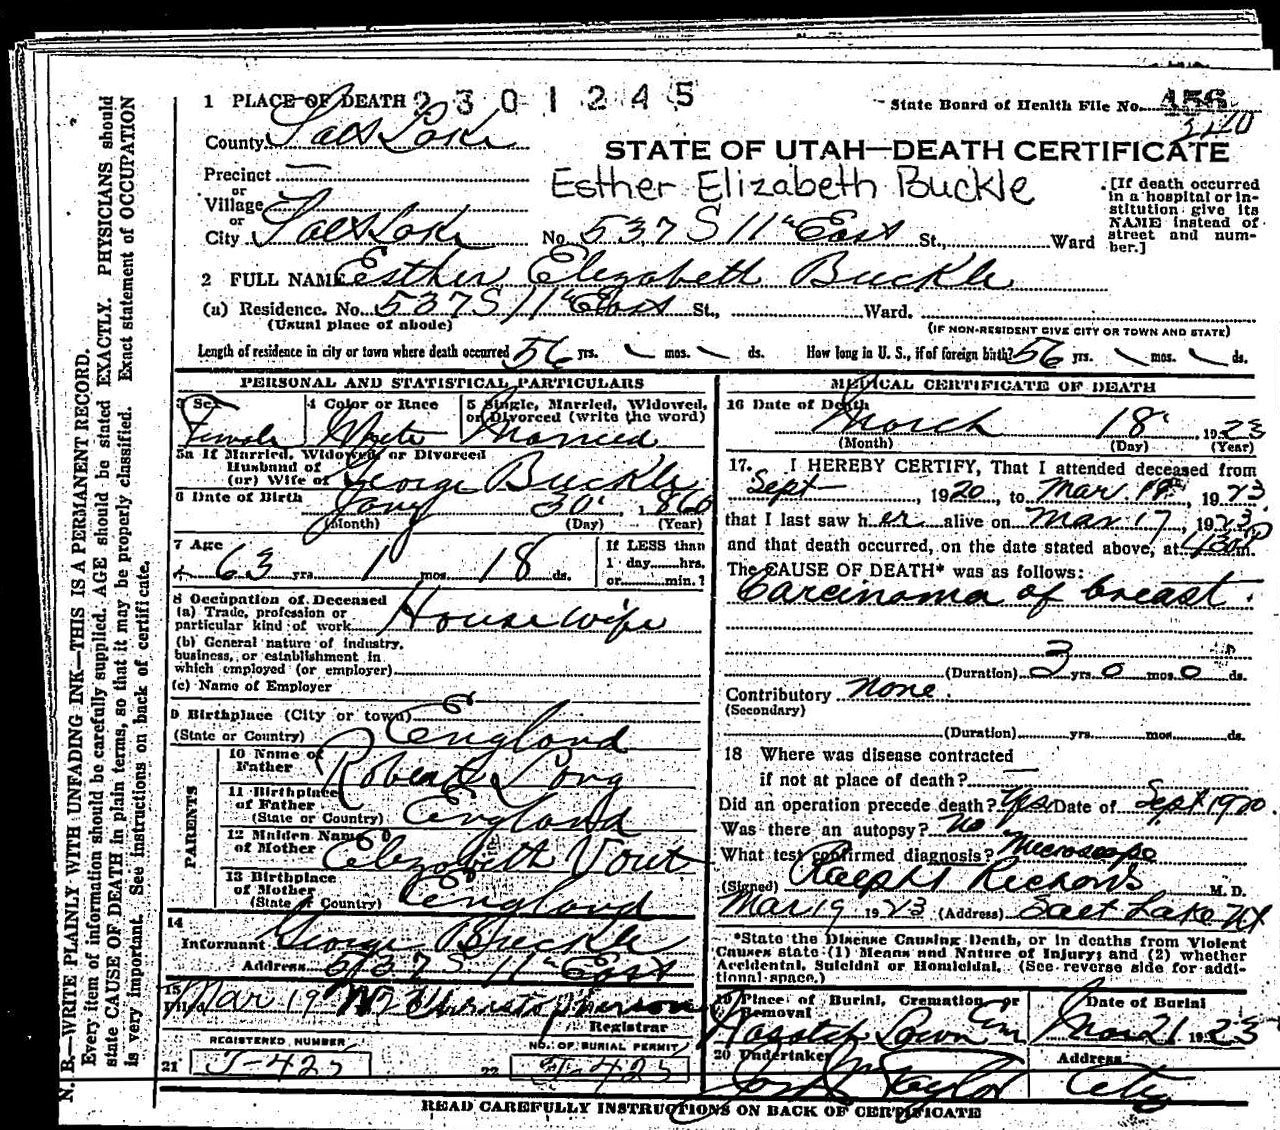 1 PLACE OF DEATH 2301245
State Board of Health File No. 456
2210
County Salt Lake
STATE OF UTAH—DEATH CERTIFICATE
Precinct —
Esther Elizabeth Buckle
or
Village
or
City Salt Lake No. 537 S 11th East St., Ward
[If death occurred in a hospital or institution give its NAME instead of street and number.]
2 FULL NAME Esther Elizabeth Buckle
(a) Residence. No. 537 S 11th East St., Ward.
(Usual place of abode)
(IF NON-RESIDENT GIVE CITY OR TOWN AND STATE)
Length of residence in city or town where death occurred 56 yrs. — mos. — ds. How long in U. S., if of foreign birth? 56 yrs. — mos. — ds.
PERSONAL AND STATISTICAL PARTICULARS
3 Sex Female
4 Color or Race White
5 Single, Married, Widowed, or Divorced (write the word) Married
5a If Married, Widowed, or Divorced
Husband of
(or) Wife of George Buckle
6 Date of Birth Jany 30 1860
(Month) (Day) (Year)
7 Age 63 yrs. 1 mos. 18 ds.
If LESS than
1 day hrs.
or min.?
8 Occupation of Deceased
(a) Trade, profession or
particular kind of work Housewife
(b) General nature of industry,
business, or establishment in
which employed (or employer)
(c) Name of Employer
9 Birthplace (City or town)
(State or Country) England
PARENTS
10 Name of
Father Robert Long
11 Birthplace
of Father
(State or Country) England
12 Maiden Name
of Mother Elizabeth Vout
13 Birthplace
of Mother
(State or Country) England
14
Informant George Buckle
Address 537 S 11th East
15
Filed Mar 19
Registrar
REGISTERED NUMBER
21 J-425
NO. OF BURIAL PERMIT
22 J-425
MEDICAL CERTIFICATE OF DEATH
16 Date of Death March 18 1923
(Month) (Day) (Year)
17. I HEREBY CERTIFY, That I attended deceased from
Sept, 1920, to Mar 18th, 1923
that I last saw her alive on Mar 17, 1923
and that death occurred, on the date stated above, at 430 P m.
The CAUSE OF DEATH* was as follows:
Carcinoma of breast.
3
(Duration) 3 yrs. 0 mos. 0 ds.
Contributory none.
(Secondary)
(Duration) yrs. mos. ds.
18 Where was disease contracted
if not at place of death? —
Did an operation precede death? Yes Date of Sept 1920.
Was there an autopsy? No
What test confirmed diagnosis? Microscope
(Signed) Ralph Richards M. D.
Mar 19 1923 (Address) Salt Lake Ut
*State the Disease Causing Death, or in deaths from Violent
Causes state (1) Means and Nature of Injury; and (2) whether
Accidental, Suicidal or Homicidal. (See reverse side for addi-
tional space.)
19 Place of Burial, Cremation or
Removal
Wasatch Lawn Cem
Date of Burial
Mar 21 1923
20 Undertaker
Taylor
Address
City
READ CAREFULLY INSTRUCTIONS ON BACK OF CERTIFICATE
N. B.—WRITE PLAINLY WITH UNFADING INK—THIS IS A PERMANENT RECORD.
Every item of information should be carefully supplied. AGE should be stated EXACTLY. PHYSICIANS should
state CAUSE OF DEATH in plain terms, so that it may be properly classified. Exact statement of OCCUPATION
is very important. See instructions on back of certificate.